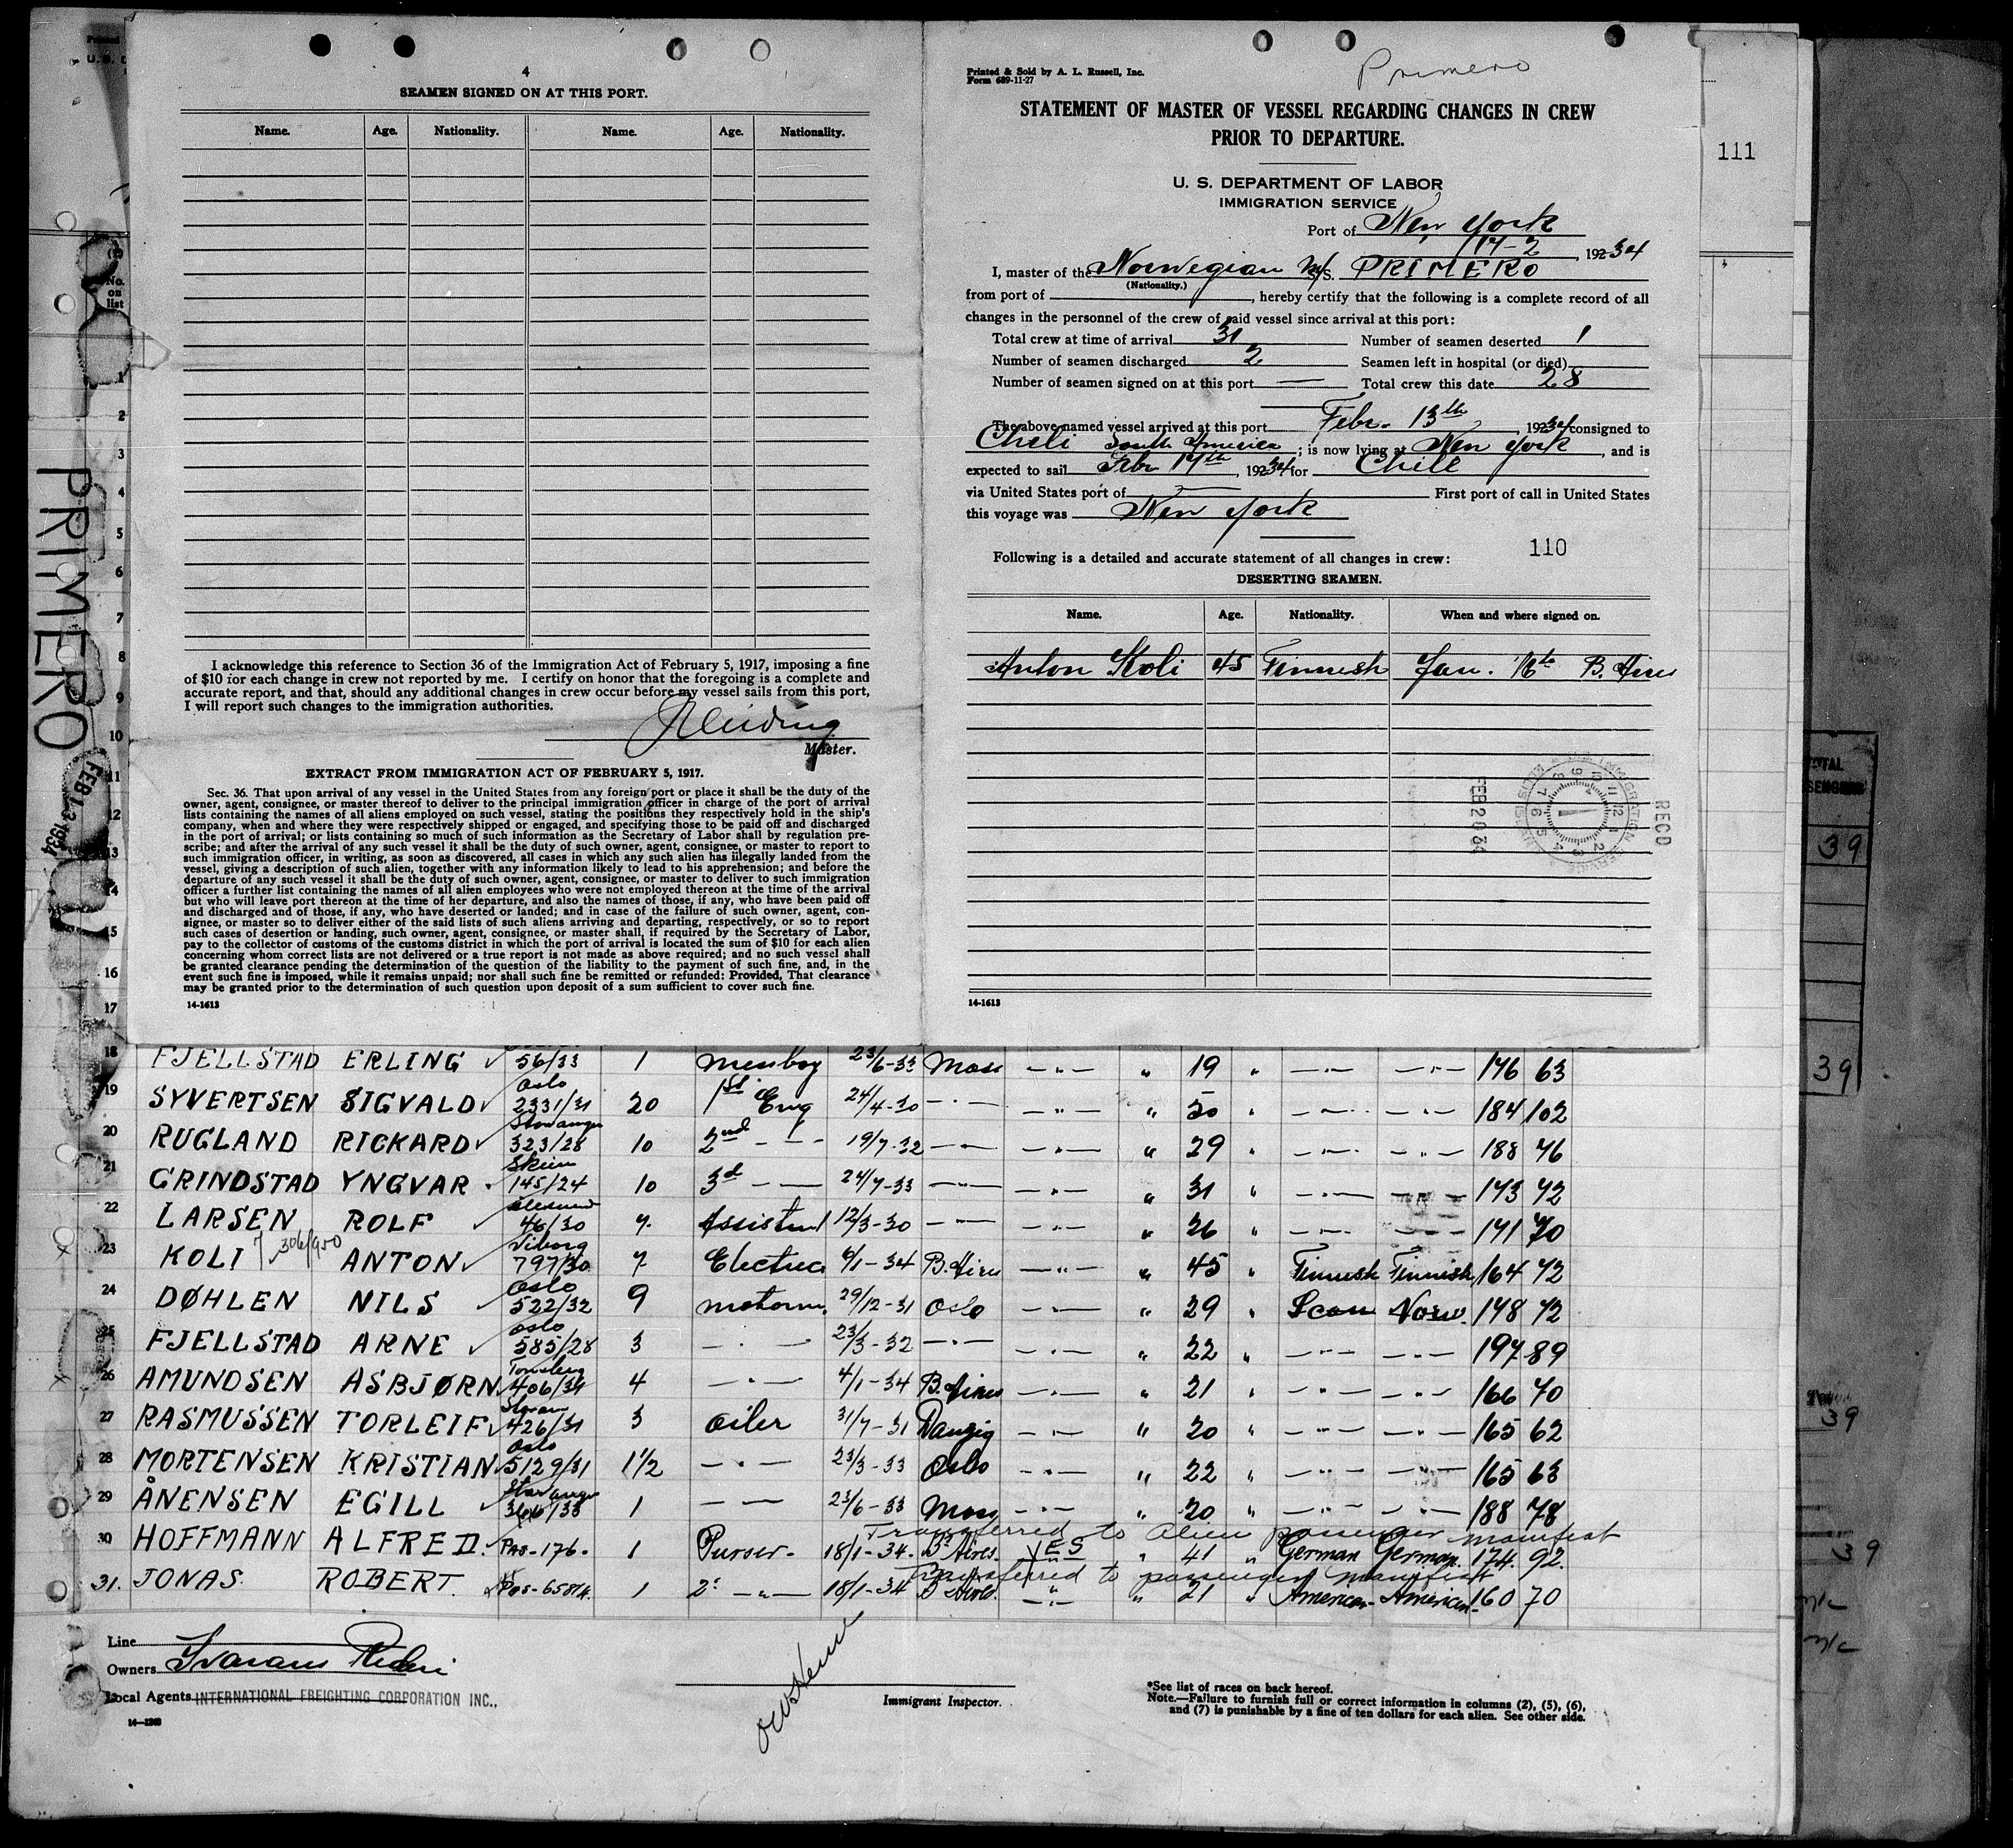 4
SEAMEN SIGNED ON AT THIS PORT.
Name. Age. Nationality. Name. Age. Nationality.
I acknowledge this reference to Section 36 of the Immigration Act of February 5, 1917, imposing a fine
of $10 for each change in crew not reported by me. I certify on honor that the foregoing is a complete and
accurate report, and that, should any additional changes in crew occur before my vessel sails from this port,
I will report such changes to the immigration authorities.
Master.
EXTRACT FROM IMMIGRATION ACT OF FEBRUARY 5, 1917.
Sec. 36. That upon arrival of any vessel in the United States from any foreign port or place it shall be the duty of the
owner, agent, consignee, or master thereof to deliver to the principal immigration officer in charge of the port of arrival
lists containing the names of all aliens employed on such vessel, stating the positions they respectively hold in the ship's
company, when and where they were respectively shipped or engaged, and specifying those to be paid off and discharged
in the port of arrival; or lists containing so much of such information as the Secretary of Labor shall by regulation pre-
scribe; and after the arrival of any such vessel it shall be the duty of such owner, agent, consignee, or master to report to
such immigration officer, in writing, as soon as discovered, all cases in which any such alien has illegally landed from the
vessel, giving a description of such alien, together with any information likely to lead to his apprehension; and before the
departure of any such vessel it shall be the duty of such owner, agent, consignee, or master to deliver to such immigration
officer a further list containing the names of all alien employees who were not employed thereon at the time of the arrival
but who will leave port thereon at the time of her departure, and also the names of those, if any, who have been paid off
and discharged and of those, if any, who have deserted or landed; and in case of the failure of such owner, agent, con-
signee, or master so to deliver either of the said lists of such aliens arriving and departing, respectively, or so to report
such cases of desertion or landing, such owner, agent, consignee, or master shall, if required by the Secretary of Labor,
pay to the collector of customs of the customs district in which the port of arrival is located the sum of $10 for each alien
concerning whom correct lists are not delivered or a true report is not made as above required; and no such vessel shall
be granted clearance pending the determination of the question of the liability to the payment of such fine, and, in the
event such fine is imposed, while it remains unpaid; nor shall such fine be remitted or refunded: Provided, That clearance
may be granted prior to the determination of such question upon deposit of a sum sufficient to cover such fine.
14-1613
Printed & Sold by A. L. Russell, Inc.
Form 689-11-27
Primero
STATEMENT OF MASTER OF VESSEL REGARDING CHANGES IN CREW
PRIOR TO DEPARTURE.
U. S. DEPARTMENT OF LABOR
IMMIGRATION SERVICE
Port of New York
17-2, 1934
I, master of the Norwegian M/S. PRIMERO
(Nationality.)
from port of , hereby certify that the following is a complete record of all
changes in the personnel of the crew of said vessel since arrival at this port:
Total crew at time of arrival 31 Number of seamen deserted 1
Number of seamen discharged 2 Seamen left in hospital (or died)
Number of seamen signed on at this port — Total crew this date 28
The above named vessel arrived at this port Febr. 13th, 1934 consigned to
Cheli South America; is now lying at New York, and is
expected to sail Febr 17th, 1934 for Chile
via United States port of — First port of call in United States
this voyage was New York
Following is a detailed and accurate statement of all changes in crew: 110
DESERTING SEAMEN.
Name. Age. Nationality. When and where signed on.
Anton Koli 45 Finnish Jan. 16th B. Aires
RECD
FEB 20 34
14-1613
111
PRIMERO
FEB 13 1934
No. on list
1
2
3
4
5
6
7
8
9
10
11
12
13
14
15
16
17
18 FJELLSTAD ERLING 56/33 1 Messboy 23/6-33 Moss 19 176 63
19 SYVERTSEN SIGVALD Oslo 2331/31 20 1st Eng 24/4-30 50 184 102
20 RUGLAND RICKARD Stavanger 323/28 10 2nd 19/7-32 29 188 76
21 GRINDSTAD YNGVAR Skien 145/24 10 3d 24/7-33 31 173 72
22 LARSEN ROLF Alesund 46/30 7 Assistent 12/3-30 26 171 70
23 KOLI ANTON Viborg 797/30 7 Electric 6/1-34 B. Aires 45 Finnish Finnish 164 72
24 DØHLEN NILS Oslo 522/32 9 motorm. 29/12-31 Oslo 29 Scan Norw. 178 72
25 FJELLSTAD ARNE Oslo 585/28 3 23/3-32 22 197 89
26 AMUNDSEN ASBJØRN Tonsberg 406/34 4 4/1-34 B. Aires 21 166 70
27 RASMUSSEN TORLEIF 426/31 3 oiler 31/7-31 Danzig 20 165 62
28 MORTENSEN KRISTIAN Oslo 5129/31 1½ 23/3-33 Oslo 22 165 63
29 ÅNENSEN EGILL Stavanger 366/33 1 23/6-33 Moss 20 188 78
Transferred to Alien passenger manifest
30 HOFFMANN ALFRED. Pas-176- 1 Purser- 18/1-34. B Aires. YES 41 German German. 174. 92.
Transferred to passenger manifest
31. JONAS. ROBERT. 1 2. 18/1-34 B Aires. 21 American- American- 160 70
Line
Owners Ivarans Rederi
Local Agents INTERNATIONAL FREIGHTING CORPORATION INC.,
Immigrant Inspector.
*See list of races on back hereof.
Note.—Failure to furnish full or correct information in columns (2), (5), (6),
and (7) is punishable by a fine of ten dollars for each alien. See other side.
39
39
39
39